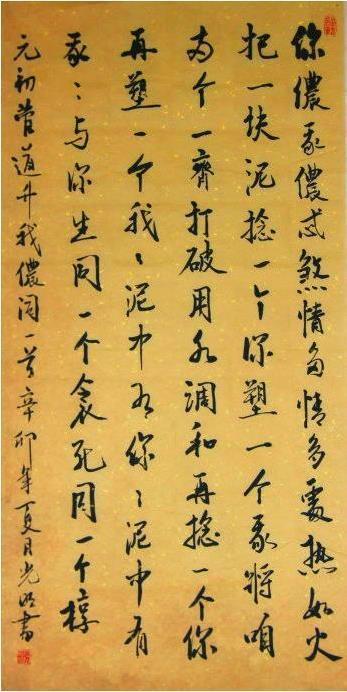 你儂我儂忒煞情多情多處热如火
把一块泥捻一个你塑一个我将咱
两个一齊打破用水调和再捻一个你
再塑一个我〻泥中有你〻泥中有
我〻与你生同一个衾死同一个椁
元初管道升我儂词一首辛卯年夏月光明书